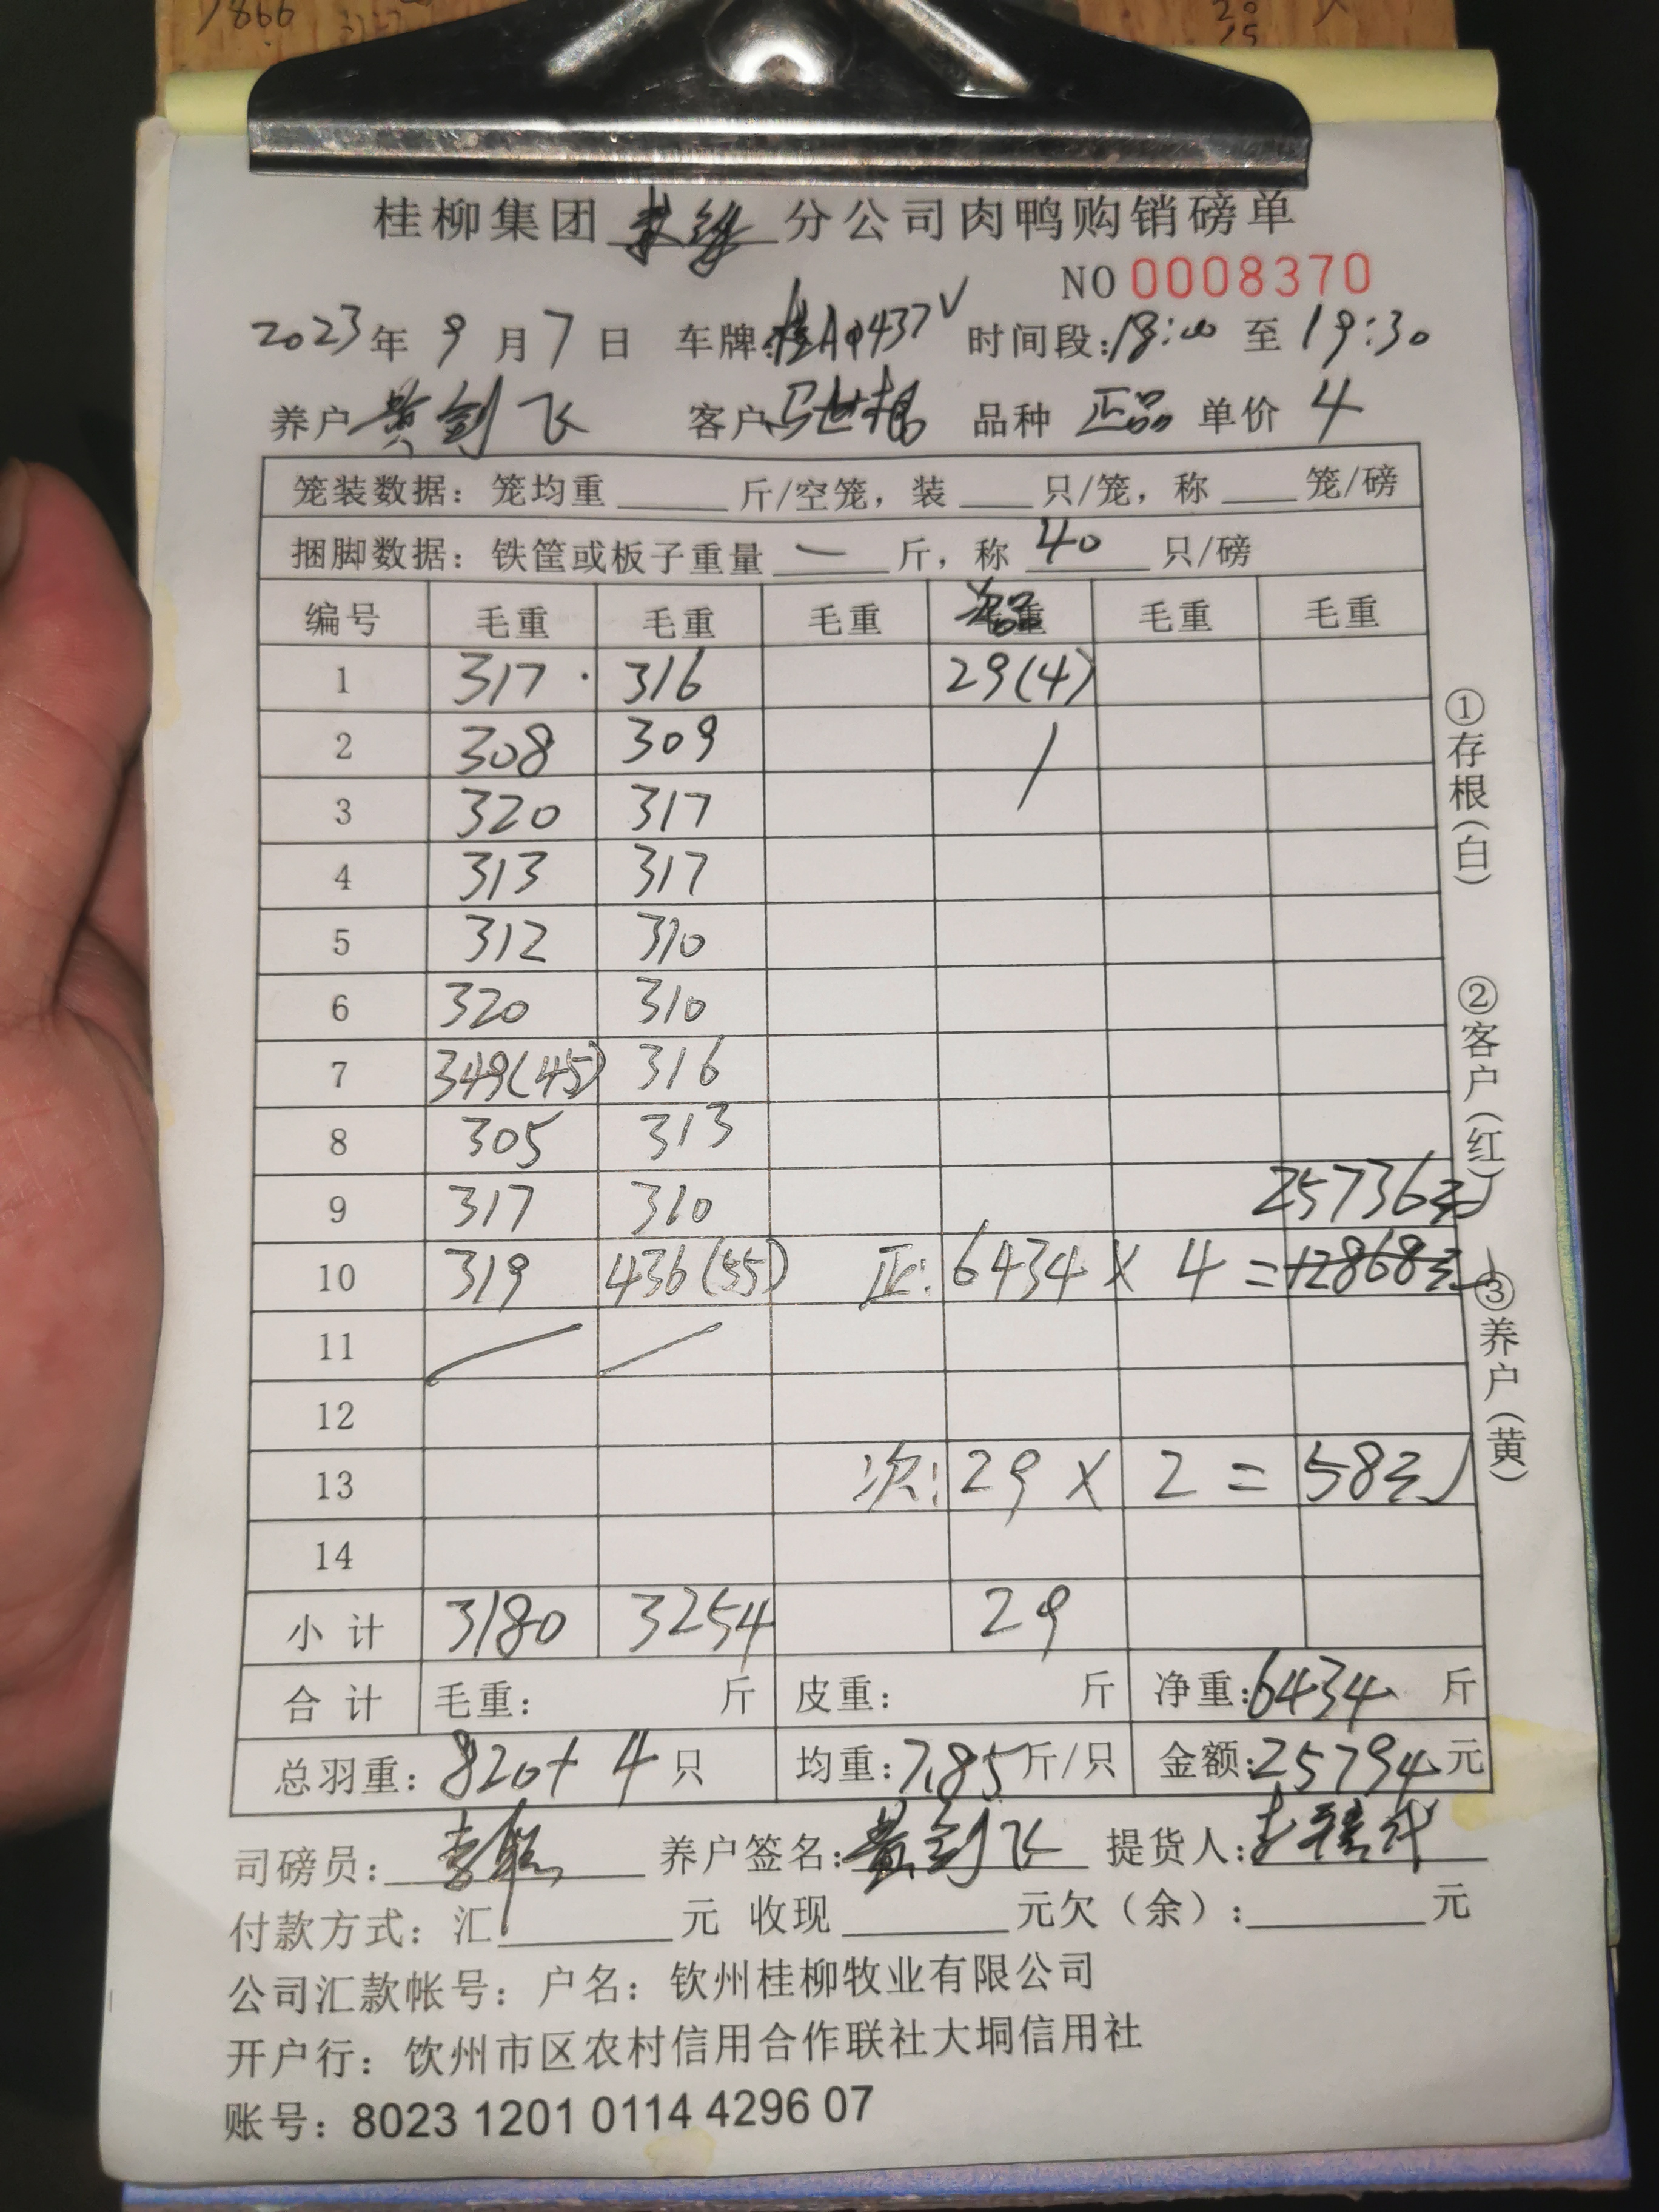 桂柳集团 分公司肉鸭购销磅单
NO 0008370
2023年 9月7日 车牌:桂A 437V 时间段:18:00 至 19:30
养户 黄剑飞 客户 马世 品种 正品 单价 4
笼装数据：笼均重 斤/空笼，装 只/笼，称 笼/磅
捆脚数据：铁筐或板子重量 一 斤，称 40 只/磅
编号 毛重 毛重 毛重 次品 毛重 毛重
1 317 · 316 29(4)
2 308 309
3 320 317
4 313 317
5 312 310
6 320 310
7 349(45) 316
8 305 313
9 317 310 25736元
10 319 436(55) 正: 6434 X 4 = 12868元
11
12
13 次: 29 X 2 = 58元
14
小计 3180 3254 29
合计 毛重: 斤 皮重: 斤 净重:6434 斤
总羽重: 820+4 只 均重:7.85斤/只 金额:25794元
司磅员: 养户签名:黄剑飞 提货人:
付款方式：汇 元 收现 元欠（余）: 元
公司汇款帐号：户名：钦州桂柳牧业有限公司
开户行：钦州市区农村信用合作联社大垌信用社
账号：8023 1201 0114 4296 07
①存根(白) ②客户(红) ③养户(黄)